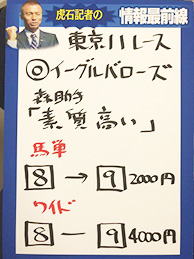 虎石記者の
情報最前線
東京11レース
◎イーグルバローズ
森助手
「素質高い」
馬単
8→9 2000円
ワイド
8―9 4000円